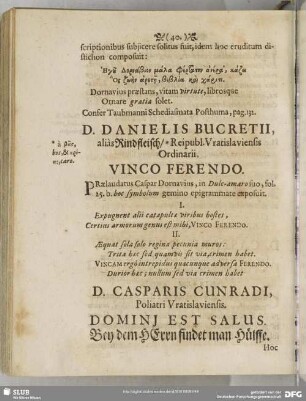 (40.)
scriptionibus subjicere solitus fuit, idem hoc eruditum di-
stichon composuit:
Dornavius præstans, vitam virtute, librosque
Ornare gratia solet.
Confer Taubmanni Schediasmata Posthuma, pag. 131.
D. DANIELIS BUCRETII,
aliàs Rindfleisch/* Reipubl. Vratislaviensis
Ordinarii.
VINCO FERENDO.
PRælaudatus Caspar Dornavius, in Dulc-amaro suo, fol.
25. b. hoc symbolum gemino epigrammate exposuit.
I.
Expugnent alii catapoltæ viribus hostes,
Certius armorum genus est mihi, VINCO FERENDO.
II.
Æquat sola solo regina pecunia muros:
Trita hæc sed quamvis sit via, crimen habet.
VINCAM ergò intrepidus quæcunque adversa FERENDO.
Durior hæc; nullum sed via crimen habet
D. CASPARIS CUNRADI,
Poliatri Vratislaviensis.
DOMINJ EST SALUS.
Bey dem HErrn findet man Hülffe.
Hoc
SLUB
DFG